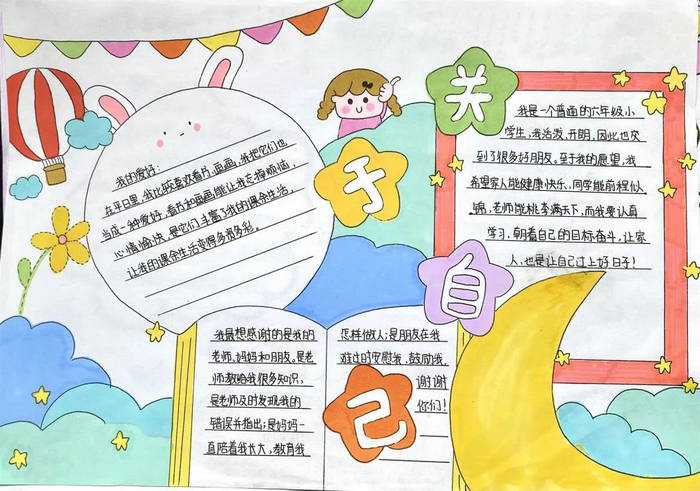 关于自己
我的爱好:
在平日里,我比较喜欢看书,画画,我把它们也
当成一种爱好,看书和画画能让我忘掉烦恼,
心情愉快,是它们丰富了我的课余生活,
让我的课余生活变得多资多彩。
我是一个普通的六年级小
学生,我活泼,开朗,因此也交
到了很多好朋友。至于我的愿望,我
希望家人能健康快乐,同学能前程似
锦,老师能桃李满天下,而我要认真
学习,朝着自己的目标奋斗,让家
人,也是让自己过上好日子!
我最想感谢的是我的
老师,妈妈和朋友。是老
师教给我很多知识,
是老师及时发现我的
错误并指出;是妈妈一
直陪着我长大,教育我
怎样做人;是朋友在我
难过时安慰我,鼓励我,
谢谢
你们!